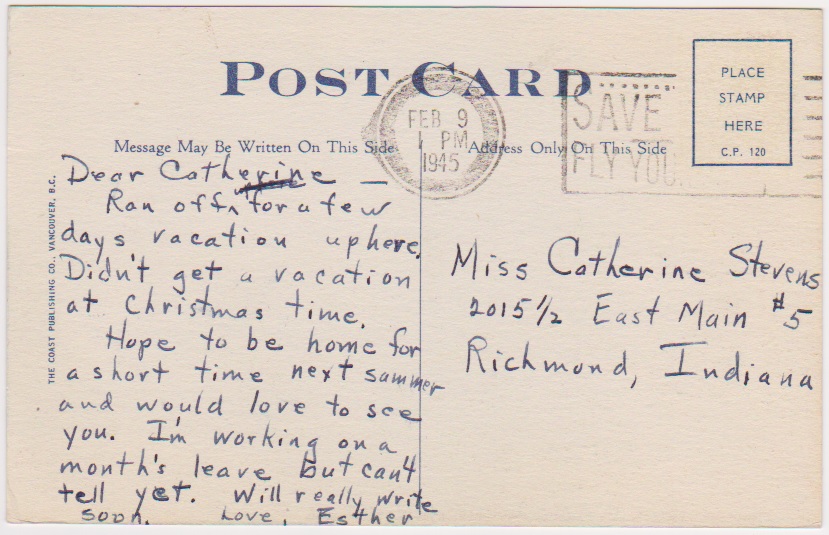 POST CARD
Message May Be Written On This Side
Address Only On This Side
PLACE
STAMP
HERE
C.P. 120
FEB 9
1 PM
1945
SAVE
FLY YOU
THE COAST PUBLISHING CO., VANCOUVER, B.C.
Dear Catherine —
Ran off for a few
days vacation up here.
Didn't get a vacation
at Christmas time.
Hope to be home for
a short time next summer
and would love to see
you. I'm working on a
month's leave but can't
tell yet. Will really write
soon. Love, Esther
Miss Catherine Stevens
2015 1/2 East Main #5
Richmond, Indiana